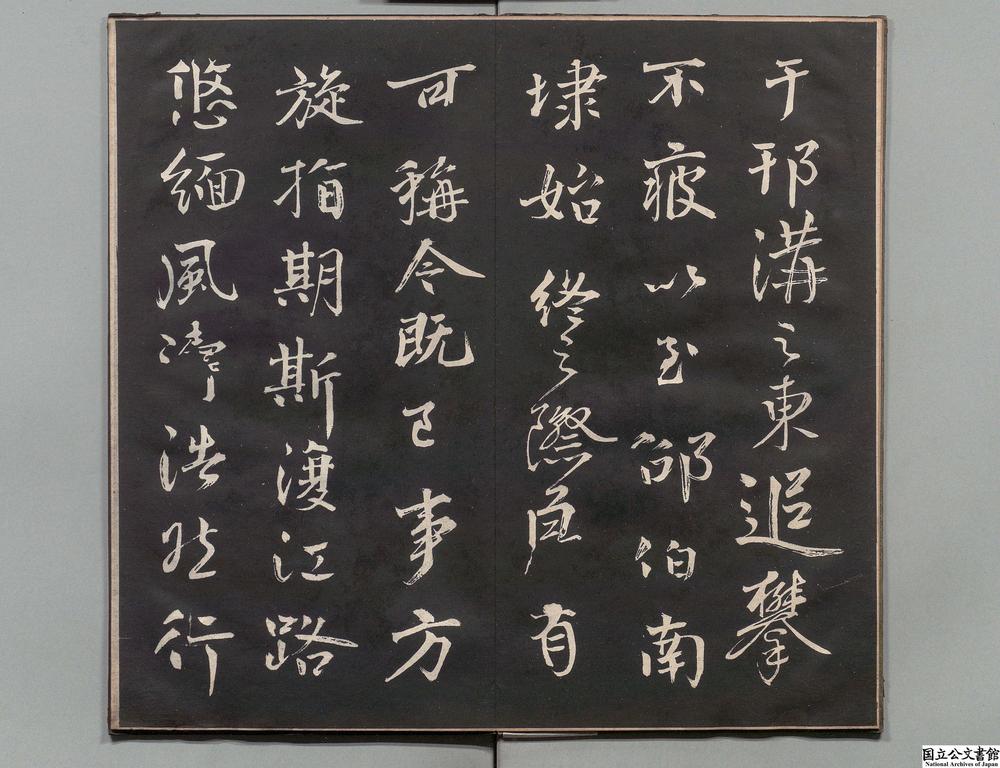 于邗溝之東追攀
不疲以至邵伯南
埭始終之際良有
可稱今既已事方
旋指期斯復江路
悠緬風濤浩然行
国立公文書館
National Archives of Japan